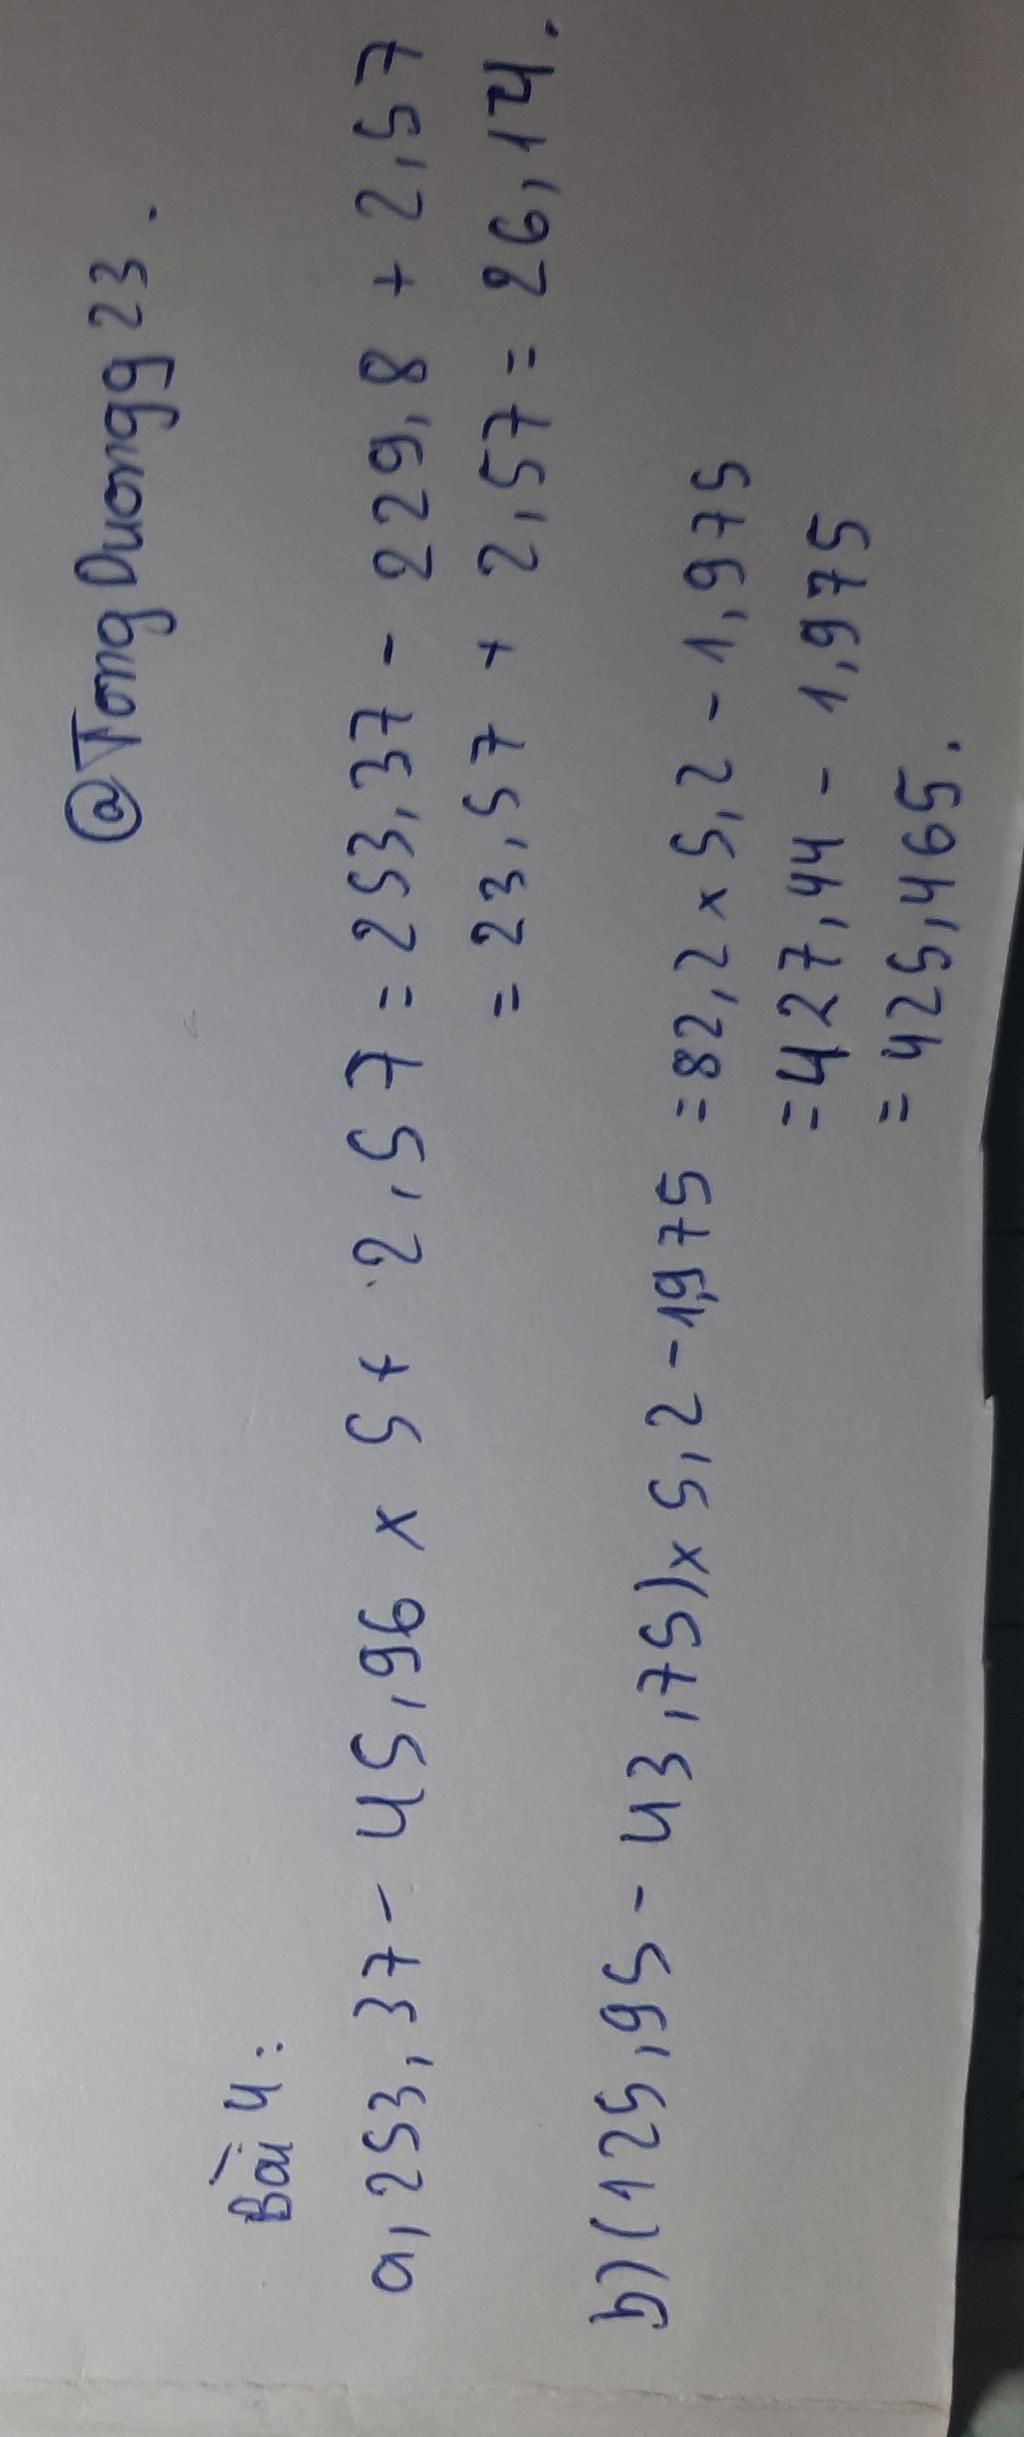 @TongDuongg23.
Bài 4:
a, 253,37 - 45,96 x 5 + 2,57 = 253,37 - 229,8 + 2,57
= 23,57 + 2,57 = 26,14.
b) (125,95 - 43,75) x 5,2 - 1,975 = 82,2 x 5,2 - 1,975
= 427,44 - 1,975
= 425,465.